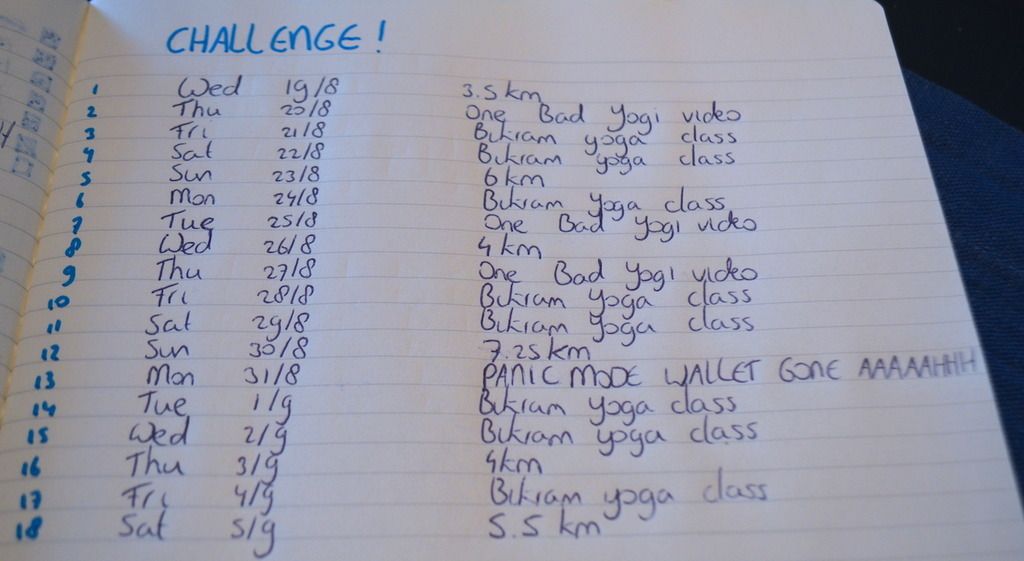 CHALLENGE!
1 Wed 19/8 3.5 km
2 Thu 20/8 One Bad Yogi video
3 Fri 21/8 Bikram yoga class
4 Sat 22/8 Bikram yoga class
5 Sun 23/8 6 km
6 Mon 24/8 Bikram yoga class
7 Tue 25/8 One Bad Yogi video
8 Wed 26/8 4 km
9 Thu 27/8 One Bad Yogi video
10 Fri 28/8 Bikram yoga class
11 Sat 29/8 Bikram yoga class
12 Sun 30/8 7.25 km
13 Mon 31/8 PANIC MODE WALLET GONE AAAAAHHH
14 Tue 1/9 Bikram yoga class
15 Wed 2/9 Bikram yoga class
16 Thu 3/9 4km
17 Fri 4/9 Bikram yoga class
18 Sat 5/9 5.5 km